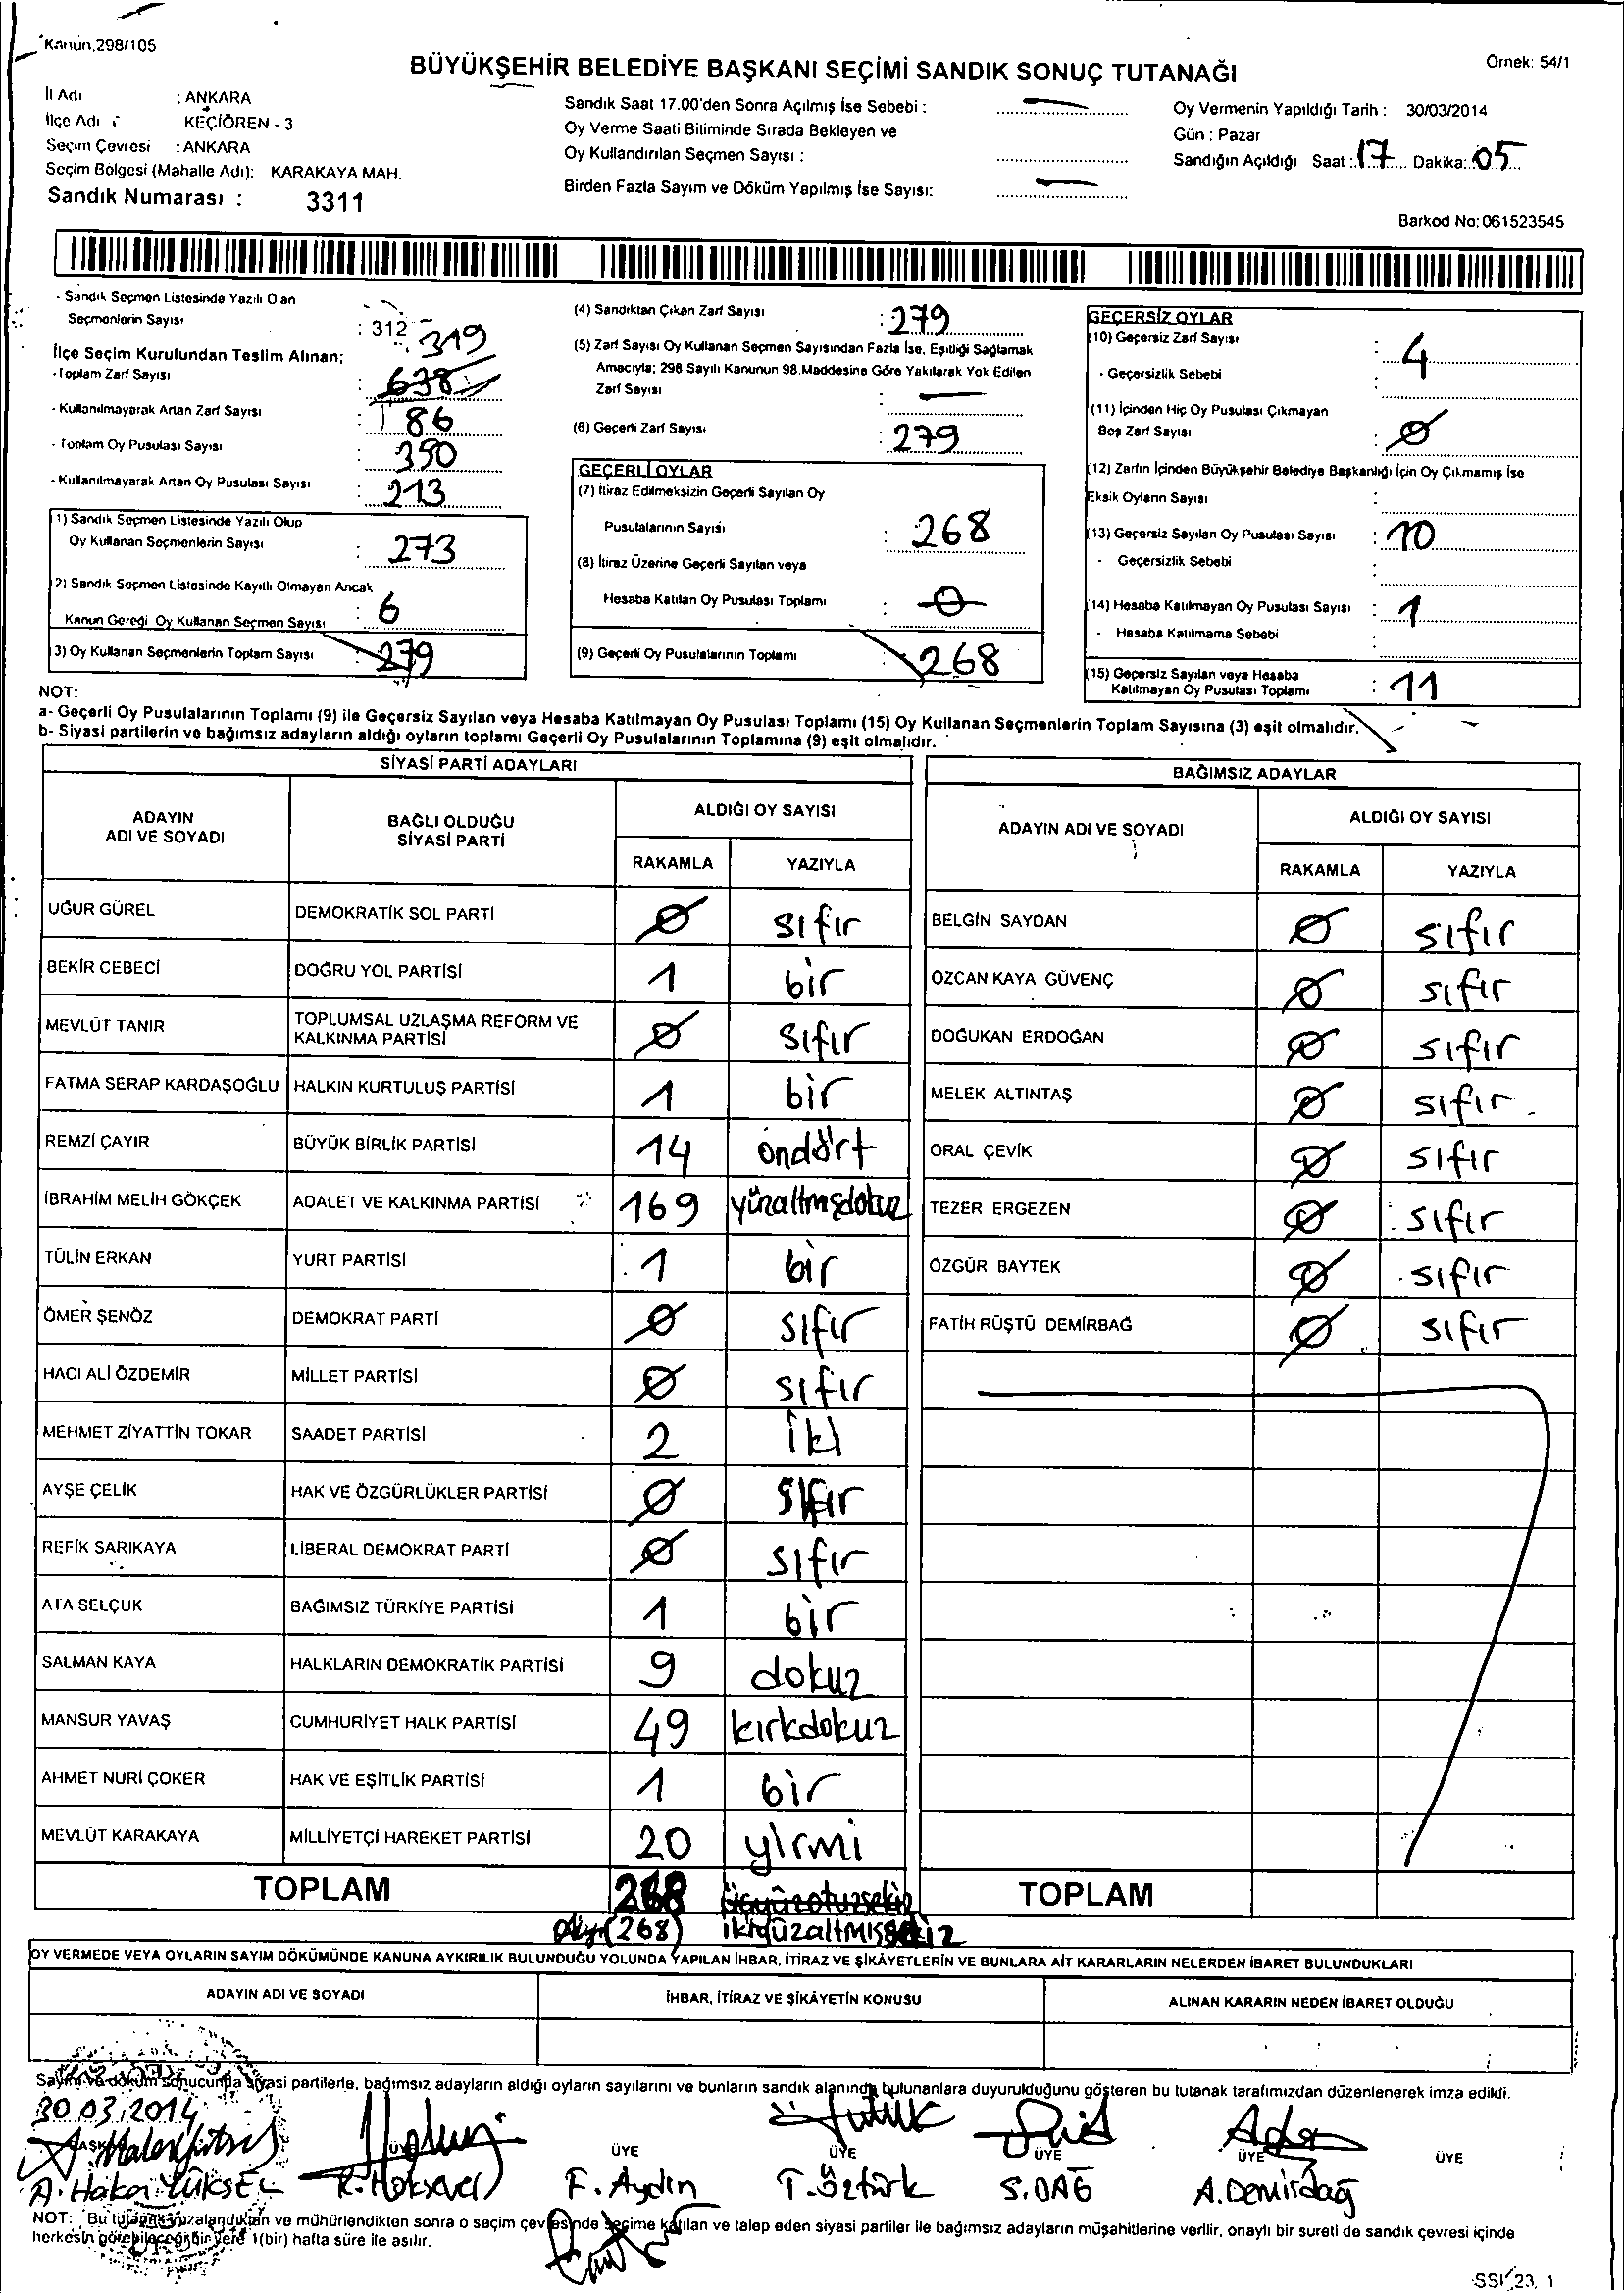 Kanun,298/105
BÜYÜKŞEHİR BELEDİYE BAŞKANI SEÇİMİ SANDIK SONUÇ TUTANAĞI
Örnek: 54/1
İl Adı : ANKARA
İlçe Adı : KEÇİÖREN - 3
Seçim Çevresi : ANKARA
Seçim Bölgesi (Mahalle Adı): KARAKAYA MAH.
Sandık Numarası : 3311
Sandık Saat 17.00'den Sonra Açılmış İse Sebebi :
Oy Verme Saati Bitiminde Sırada Bekleyen ve
Oy Kullandırılan Seçmen Sayısı :
Birden Fazla Sayım ve Döküm Yapılmış İse Sayısı:
Oy Vermenin Yapıldığı Tarih : 30/03/2014
Gün : Pazar
Sandığın Açıldığı Saat : 17 Dakika: 05
Barkod No: 061523545
- Sandık Seçmen Listesinde Yazılı Olan
Seçmenlerin Sayısı : 312 319
İlçe Seçim Kurulundan Teslim Alınan;
- Toplam Zarf Sayısı : 638
- Kullanılmayarak Artan Zarf Sayısı : 86
- Toplam Oy Pusulası Sayısı : 350
- Kullanılmayarak Artan Oy Pusulası Sayısı : 213
1) Sandık Seçmen Listesinde Yazılı Olup
Oy Kullanan Seçmenlerin Sayısı : 273
2) Sandık Seçmen Listesinde Kayıtlı Olmayan Ancak
Kanun Gereği Oy Kullanan Seçmen Sayısı : 6
3) Oy Kullanan Seçmenlerin Toplam Sayısı : 279
(4) Sandıktan Çıkan Zarf Sayısı : 279
(5) Zarf Sayısı Oy Kullanan Seçmen Sayısından Fazla İse, Eşitliği Sağlamak
Amacıyla; 298 Sayılı Kanunun 98.Maddesine Göre Yakılarak Yok Edilen
Zarf Sayısı :
(6) Geçerli Zarf Sayısı : 279
GEÇERLİ OYLAR
(7) İtiraz Edilmeksizin Geçerli Sayılan Oy
Pusulalarının Sayısı : 268
(8) İtiraz Üzerine Geçerli Sayılan veya
Hesaba Katılan Oy Pusulası Toplamı : 0
(9) Geçerli Oy Pusulalarının Toplamı : 268
GEÇERSİZ OYLAR
(10) Geçersiz Zarf Sayısı : 4
- Geçersizlik Sebebi :
(11) İçinden Hiç Oy Pusulası Çıkmayan
Boş Zarf Sayısı : Ø
(12) Zarfın İçinden Büyükşehir Belediye Başkanlığı İçin Oy Çıkmamış İse
Eksik Oyların Sayısı :
(13) Geçersiz Sayılan Oy Pusulası Sayısı : 10
- Geçersizlik Sebebi :
(14) Hesaba Katılmayan Oy Pusulası Sayısı : 1
- Hesaba Katılmama Sebebi :
(15) Geçersiz Sayılan veya Hesaba
Katılmayan Oy Pusulası Toplamı : 11
NOT:
a- Geçerli Oy Pusulalarının Toplamı (9) ile Geçersiz Sayılan veya Hesaba Katılmayan Oy Pusulası Toplamı (15) Oy Kullanan Seçmenlerin Toplam Sayısına (3) eşit olmalıdır.
b- Siyasi partilerin ve bağımsız adayların aldığı oyların toplamı Geçerli Oy Pusulalarının Toplamına (9) eşit olmalıdır.
SİYASİ PARTİ ADAYLARI
ADAYIN ADI VE SOYADI
BAĞLI OLDUĞU SİYASİ PARTİ
ALDIĞI OY SAYISI
RAKAMLA YAZIYLA
UĞUR GÜREL DEMOKRATİK SOL PARTİ Ø sıfır
BEKİR CEBECİ DOĞRU YOL PARTİSİ 1 bir
MEVLÜT TANIR TOPLUMSAL UZLAŞMA REFORM VE KALKINMA PARTİSİ Ø sıfır
FATMA SERAP KARDAŞOĞLU HALKIN KURTULUŞ PARTİSİ 1 bir
REMZİ ÇAYIR BÜYÜK BİRLİK PARTİSİ 14 ondört
İBRAHİM MELİH GÖKÇEK ADALET VE KALKINMA PARTİSİ 169 yüzaltmışdokuz
TÜLİN ERKAN YURT PARTİSİ 1 bir
ÖMER ŞENÖZ DEMOKRAT PARTİ Ø sıfır
HACI ALİ ÖZDEMİR MİLLET PARTİSİ Ø sıfır
MEHMET ZİYATTİN TOKAR SAADET PARTİSİ 2 iki
AYŞE ÇELİK HAK VE ÖZGÜRLÜKLER PARTİSİ Ø sıfır
REFİK SARIKAYA LİBERAL DEMOKRAT PARTİ Ø sıfır
ATA SELÇUK BAĞIMSIZ TÜRKİYE PARTİSİ 1 bir
SALMAN KAYA HALKLARIN DEMOKRATİK PARTİSİ 9 dokuz
MANSUR YAVAŞ CUMHURİYET HALK PARTİSİ 49 kırkdokuz
AHMET NURİ ÇOKER HAK VE EŞİTLİK PARTİSİ 1 bir
MEVLÜT KARAKAYA MİLLİYETÇİ HAREKET PARTİSİ 20 yirmi
TOPLAM 268
(268) ikiyüzaltmışsekiz
BAĞIMSIZ ADAYLAR
ADAYIN ADI VE SOYADI
ALDIĞI OY SAYISI
RAKAMLA YAZIYLA
BELGİN SAYDAN Ø sıfır
ÖZCAN KAYA GÜVENÇ Ø sıfır
DOĞUKAN ERDOĞAN Ø sıfır
MELEK ALTINTAŞ Ø sıfır
ORAL ÇEVİK Ø sıfır
TEZER ERGEZEN Ø sıfır
ÖZGÜR BAYTEK Ø sıfır
FATİH RÜŞTÜ DEMİRBAĞ Ø sıfır
TOPLAM
OY VERMEDE VEYA OYLARIN SAYIM DÖKÜMÜNDE KANUNA AYKIRILIK BULUNDUĞU YOLUNDA YAPILAN İHBAR, İTİRAZ VE ŞİKÂYETLERİN VE BUNLARA AİT KARARLARIN NELERDEN İBARET BULUNDUKLARI
ADAYIN ADI VE SOYADI
İHBAR, İTİRAZ VE ŞİKÂYETİN KONUSU
ALINAN KARARIN NEDEN İBARET OLDUĞU
Sayım ve döküm sonucunda siyasi partilerle, bağımsız adayların aldığı oyların sayılarını ve bunların sandık alanında bulunanlara duyurulduğunu gösteren bu tutanak tarafımızdan düzenlenerek imza edildi.
30.03.2014
ÜYE ÜYE ÜYE ÜYE ÜYE ÜYE
A. Hakan YÜKSEL F. Aydın T. Öztürk S. DAĞ A. Demirdağ
NOT: Bu tutanak imzalandıktan ve mühürlendikten sonra o seçim çevresinde seçime katılan ve talep eden siyasi partiler ile bağımsız adayların müşahitlerine verilir, onaylı bir sureti de sandık çevresi içinde
herkesin görebileceği bir yere 1(bir) hafta süre ile asılır.